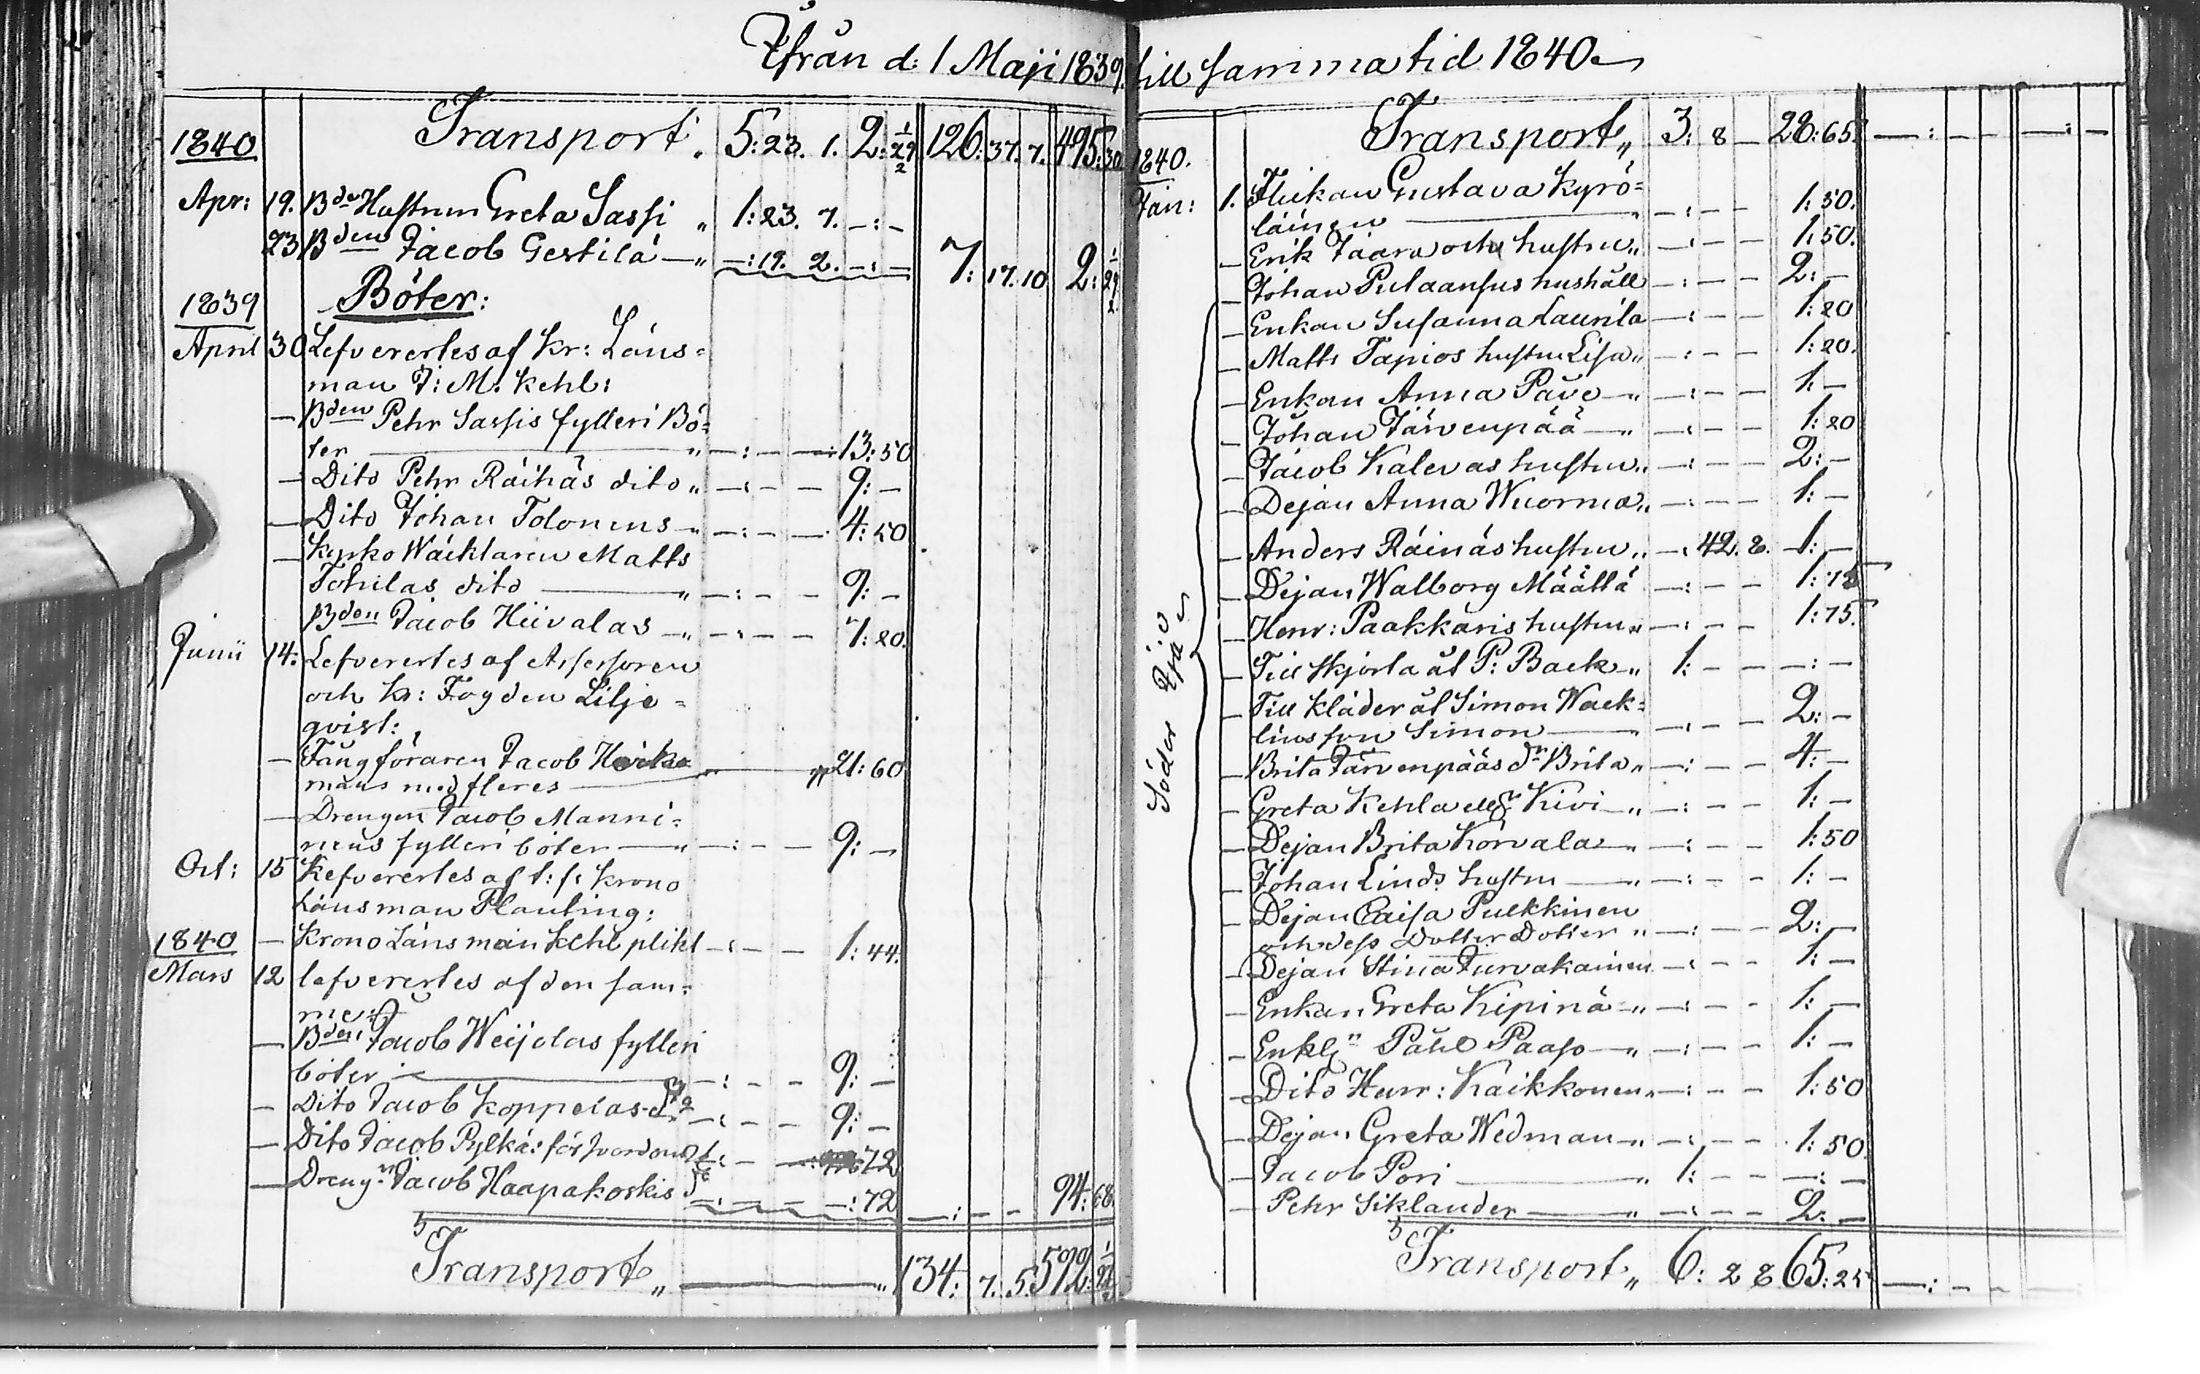 Ifrån d: 1 Maji 1839
1840 Transport „ 5: 23. 1. 2: 126: 37. 7. 495: 30
Apr: 19. Bde Hustrun Greta Sassi „ 1: 23. 7. –: –
23 Bden Jacob Gestilä — „ –: 19. 2. –: – 7: 17. 10 2:
1839 Böter:
April 30 Lefverertes af Kr: Läns=
man J: M. Kehl:
— Bden Pehr Sassis fylleri Bö=
ter — „ –: – – 13: 50
— Dito Pehr Räihäs dito „ –: – – 9: –
— Dito Johan Tolonens „ –: – – 4: 50
— Kyrko Wäcktaren Matts
Tohilas dito — „ –: – – 9: –
Bden Jacob Hiivalas — „ –: – – 7: 20.
Junii 14. Lefverertes af Assessoren
och Kr: Fogden Lilje=
qvist:
— Fångföraren Jacob
mans med fleres — 21: 60
— Drengen Jacob Manni=
nens fylleri böter — „ –: – – 9: –
Oct: 15 Lefverertes af t: f: Krono
Länsman Planting:
1840 — Krono Länsman Kehl plikt –: – – 1: 44.
Mars 12 lefverertes af den sam=
me:
— Bden Jacob Weijolas fylleri
böter — –: – – 9: –
— Dito Jacob Koppelas –: – – 9: –
— Dito Jacob Pylkä: –: – 72
— Drengn Jacob Haapakoskis –: 72 –: – – 94: 68.
Transport „ — „ 134: 7. 5. 592:
till samma tid 1840
1840. Transport „ 3: 8 – 28: 65. –: – – –: –
Jan: 1. Flickan Gustava Kyrö=
läinen — „ –: – – 1: 50.
— Erik Jaara och hustru „ –: – – 1: 50.
— Johan Pulaansus hushåll –: – – 2: –
— Enkan Susanna Laurila –: – – 1: 20
— Matts Tapios hustru Lisa „ –: – – 1: 20.
— Enkan Anna Pave — „ –: – – 1: –
— Johan Järvenpää — „ –: – – 1: 20
— Jacob Kalevas hustru „ –: – – 2: –
— Dejan Anna Wuorma „ –: – – 1: –
— Anders Räinäs hustru „ –: 42. 8. 1: –
— Dejan Walborg Määttä –: – – 1: 75
— Henr: Paakkaris hustru „ –: – – 1: 75.
— Till skjorta åt P: Back „ 1: – – –: –
— Till kläder åt Simon Wack=
linsson Simon — –: – – 2: –
— Brita Järvenpääs dr Brita „ –: – – 4: –
— Greta Kehla ellr Kivi — „ –: – – 1: –
— Dejan Brita Korvala — „ –: – – 1: 50
— Johan Linds hustru — „ –: – – 1: –
— Dejan Caisa Pulkkinen
och dess Dotter Dotter „ –: – – 2: –
— Dejan Stina Turvakainen –: – – 1: –
— Enkan Greta Kipinä — „ –: – – 1: –
— Enkl: Påhl Paaso — „ –: – – 1: –
— Dito Henr: Kaikkonen „ –: – – 1: 50
— Dejan Greta Wedman — „ –: – – 1: 50.
— Jacob Pori — „ 1: – – –: –
— Pehr Siklander — „ –: – – 2: –
Transport „ 6: 2 8 65: 25 –: – –
Söder